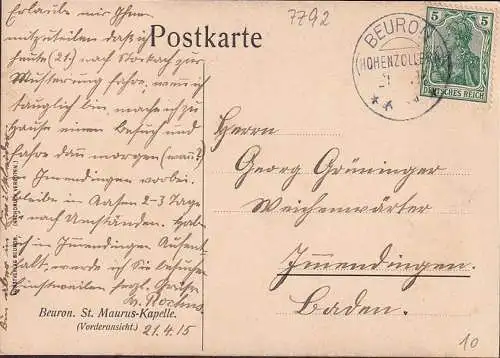 7792
Postkarte
BEURON
(HOHENZOLLERN)
5 5
DEUTSCHES REICH
Erlaube mir Ihnen
mitzuteilen daß ich
heute (21.) nach Stockach zur
Musterung fahre, wenn ich
tauglich bin, mache ich zu
Hause einen Besuch und
fahre dann morgen (wann?)
Immendingen vorbei.
bleibe in Aasen 2-3 Tage
nach Umständen. Habe
ich in Immendingen Aufent-
halt, werde ich Sie besuchen
einstweilen herzl. Grüße
Herrn
Georg Grüninger
Weichenwärter
Immendingen.
Baden.
Beuron. St. Maurus-Kapelle.
(Vorderansicht.)
21.4.15
10